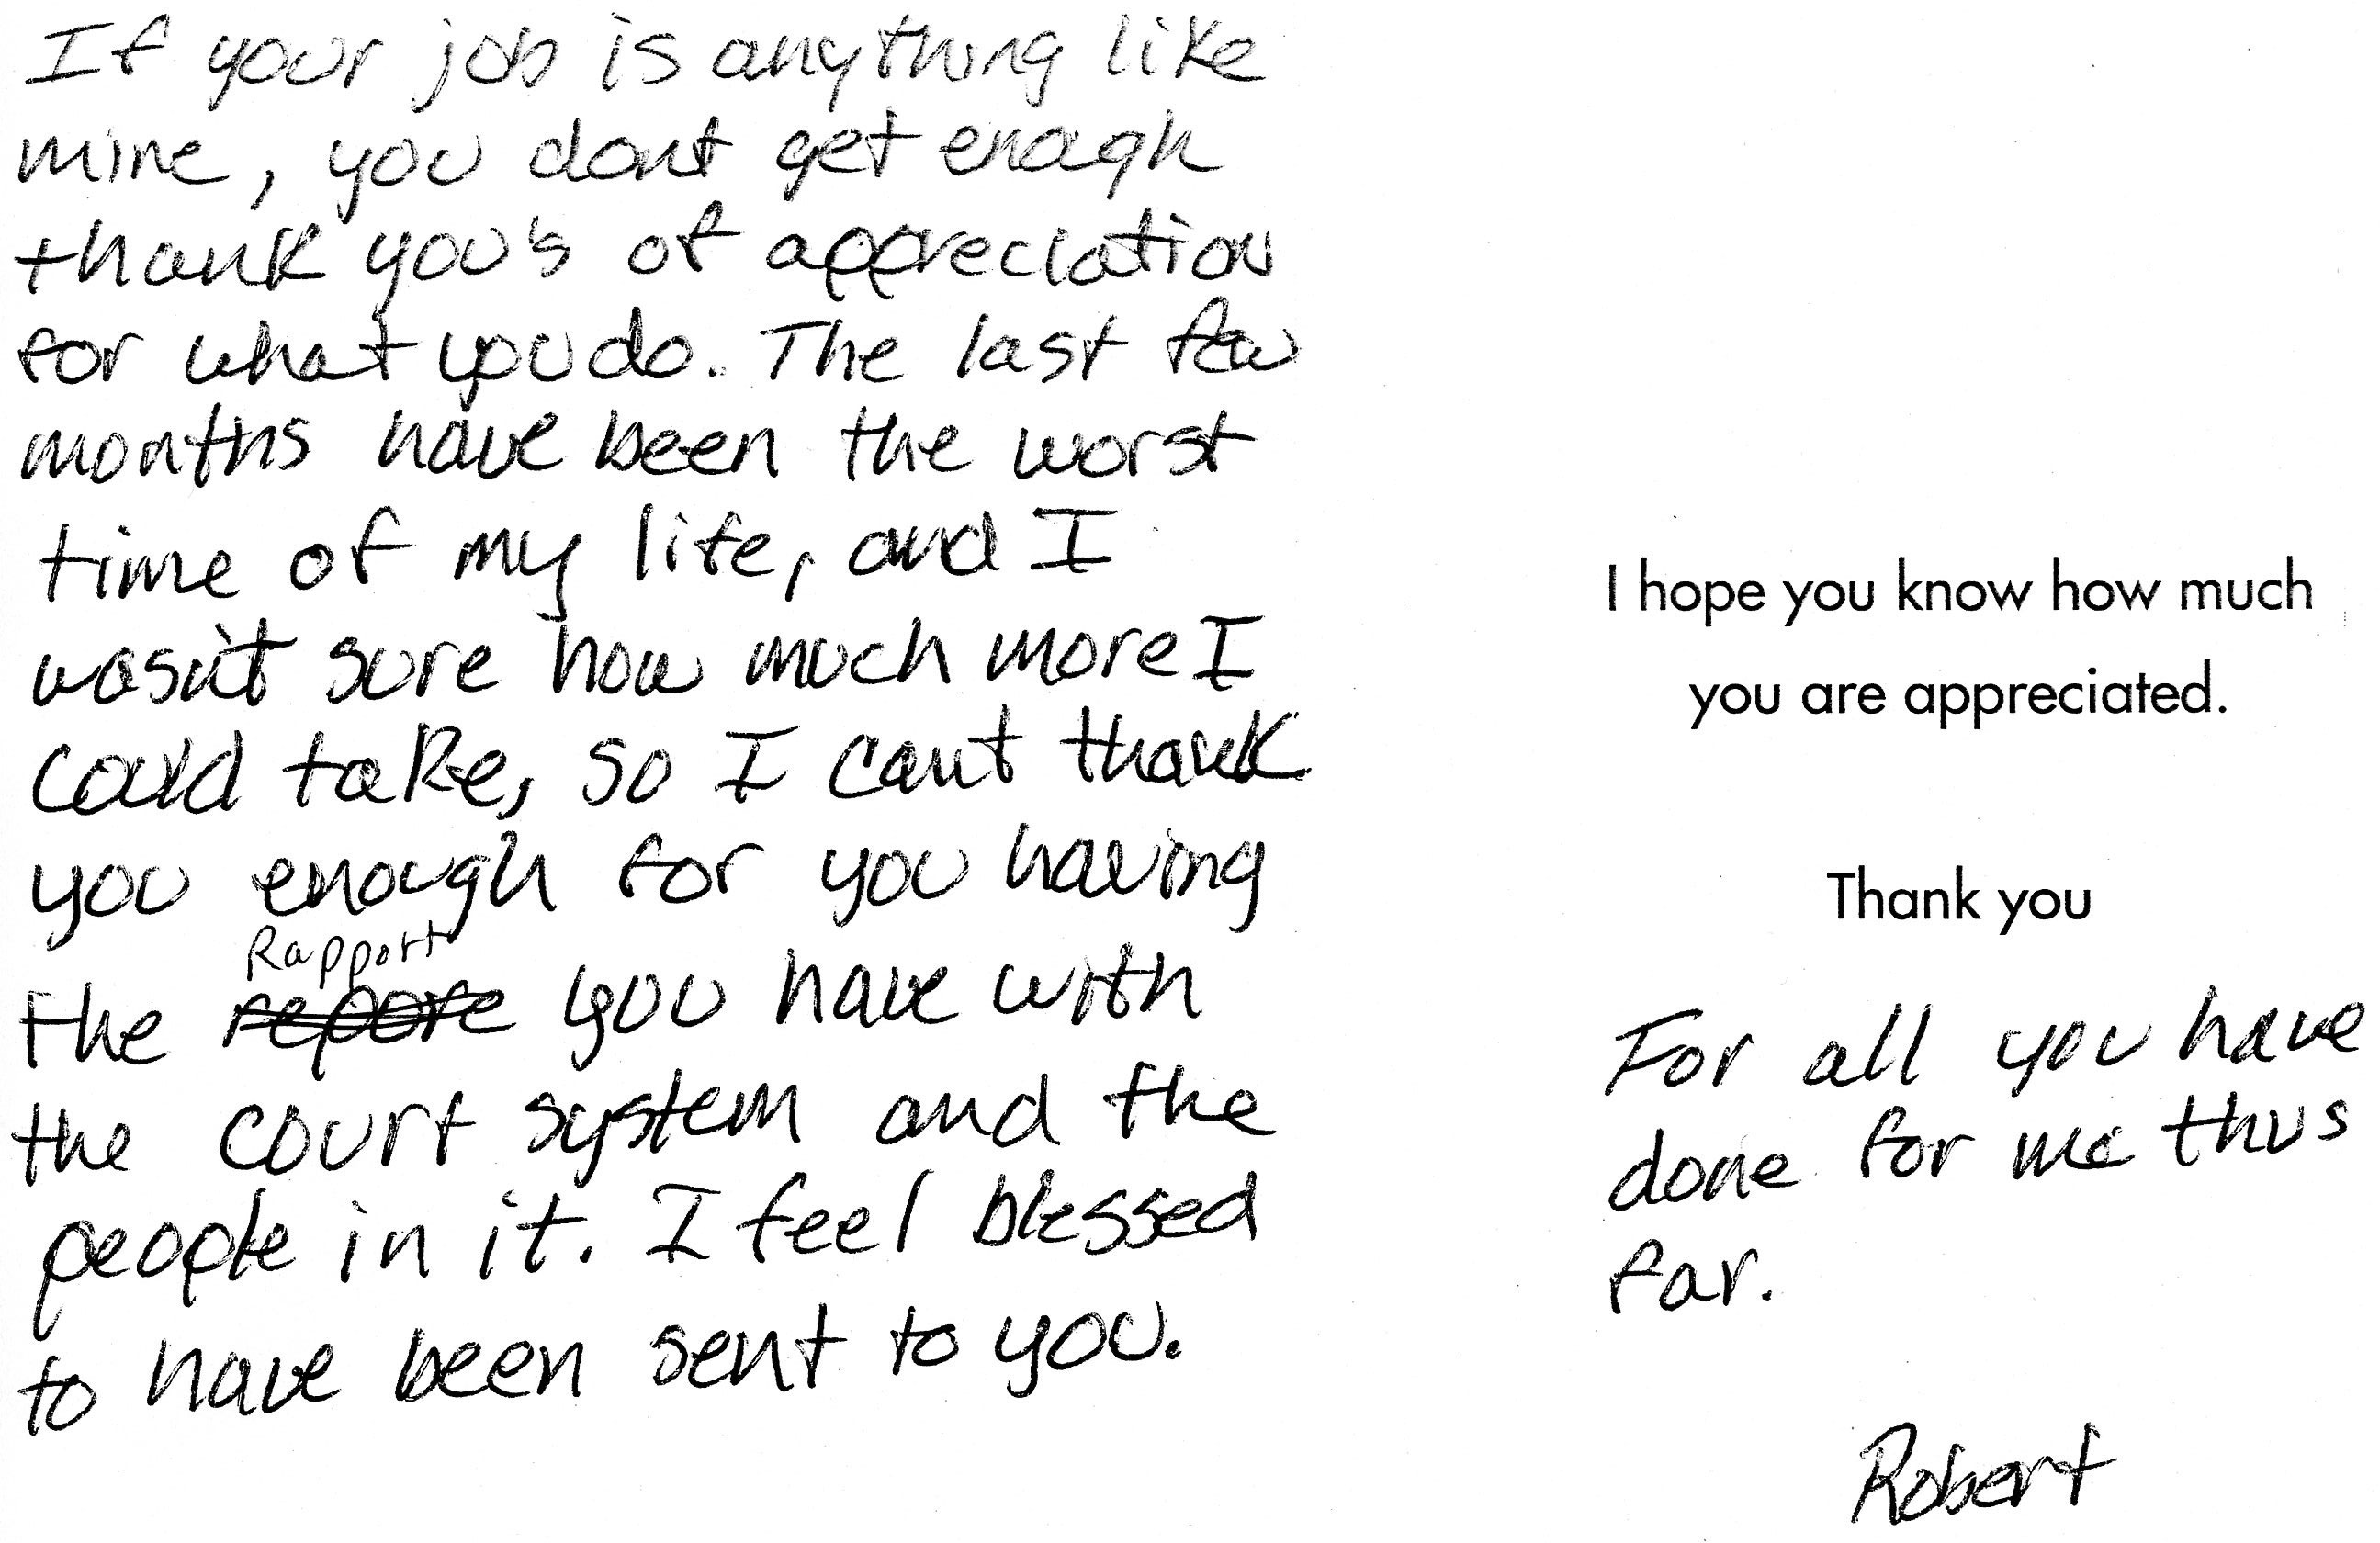 If your job is anything like
mine, you dont get enough
thank you's of appreciation
for what you do. The last few
months have been the worst
time of my life, and I
wasn't sure how much more I
could take, so I can't thank
you enough for you having
Rapport
the repore you have with
the court system and the
people in it. I feel blessed
to have been sent to you.
I hope you know how much
you are appreciated.
Thank you
For all you have
done for me thus
far.
Robert